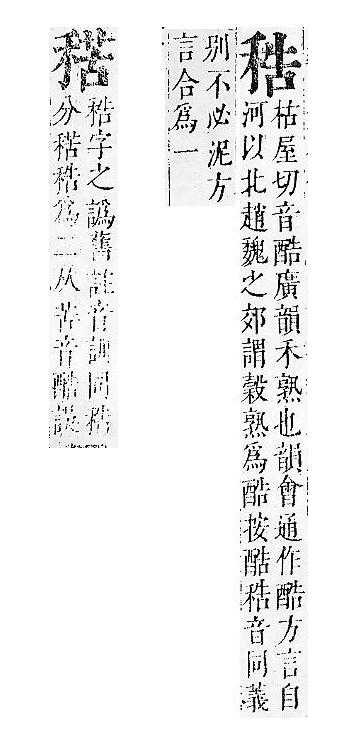 𥞴
枯屋切音酷廣韻禾熟也韻會通作酷方言自
河以北趙魏之郊謂穀熟爲酷按酷𥞴音同義
別不必泥方
言合爲一
𥞴字之譌舊註音訓同𥞴
分𥞴爲二从苦音酷誤